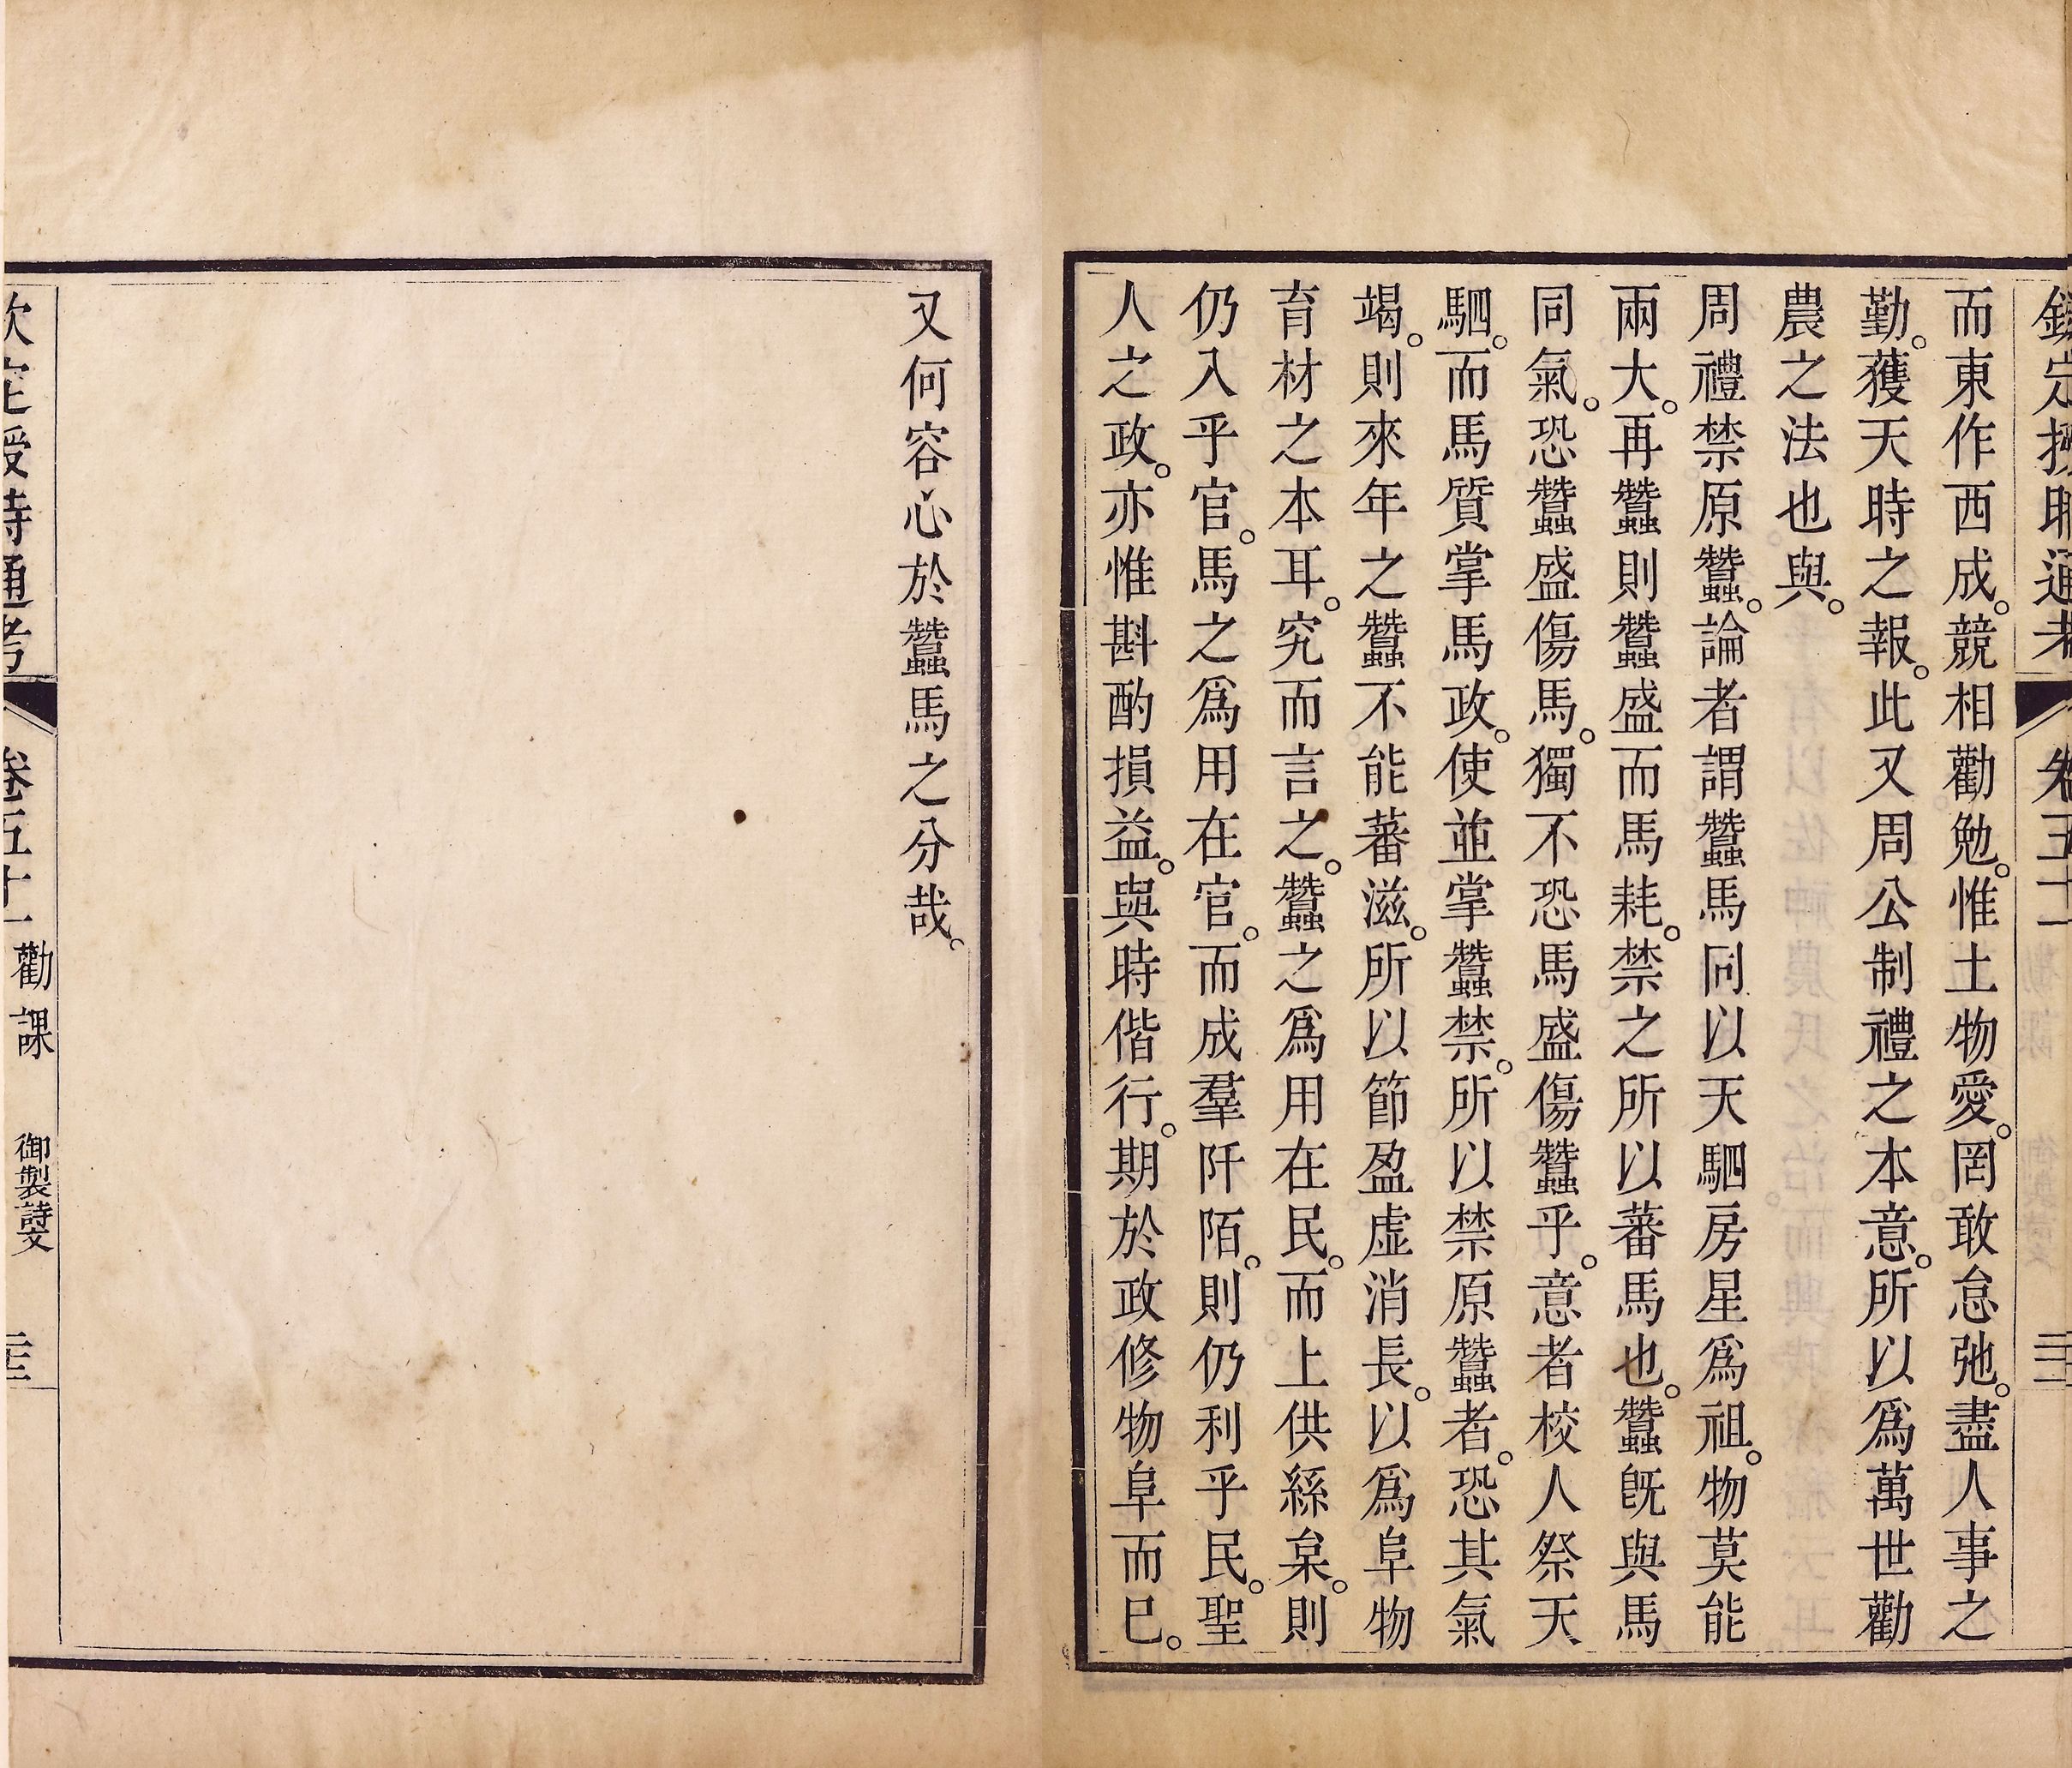 欽定授時通考 卷五十一
而東作西成。競相勸勉。惟土物愛。罔敢怠弛。盡人事之
勤。獲天時之報。此又周公制禮之本意。所以爲萬世勸
農之法也與。
周禮禁原蠶。論者謂蠶馬同以天駟房星爲祖。物莫能
兩大。再蠶則蠶盛而馬耗。禁之所以蕃馬也。蠶旣與馬
同氣。恐蠶盛傷馬。獨不恐馬盛傷蠶乎。意者校人祭天
駟。而馬質掌馬政。使並掌蠶禁。所以禁原蠶者。恐其氣
竭。則來年之蠶不能蕃滋。所以節盈虛消長。以爲阜物
育材之本耳。究而言之。蠶之爲用在民。而上供綵枲。則
仍入乎官。馬之爲用在官。而成羣阡陌。則仍利乎民。聖
人之政。亦惟斟酌損益。與時偕行。期於政修物阜而已。
又何容心於蠶馬之分哉。
欽定授時通考 卷五十一 勸課 御製詩文